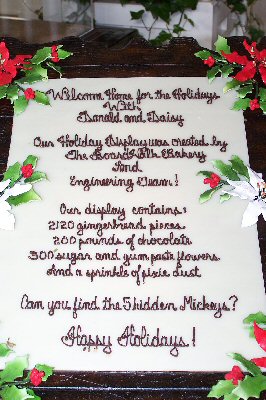 Welcome Home for the Holidays
With
Donald and Daisy
Our Holiday Display was created by
The BoardWalk Bakery
And
Engineering Team!
Our display contains:
2120 gingerbread pieces
200 pounds of chocolate
300 sugar and gum paste flowers
And a sprinkle of pixie dust
Can you find the 5 hidden Mickeys?
Happy Holidays!